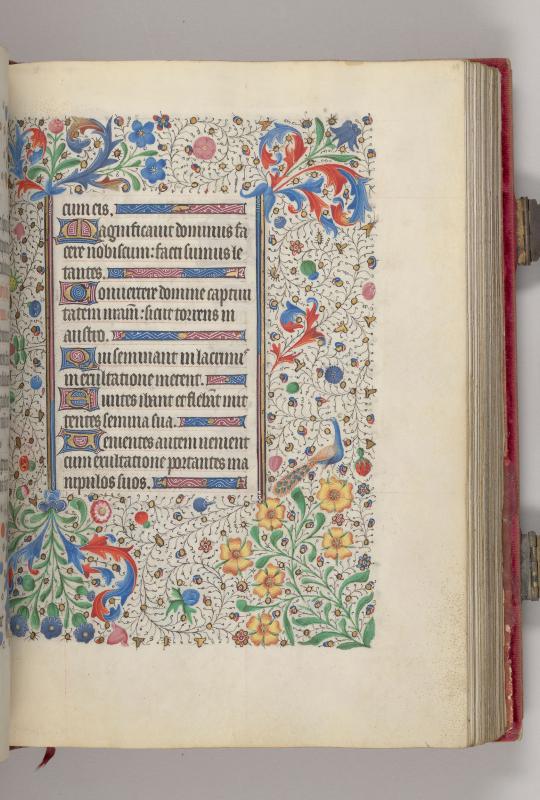 cum eis.
Magnificavit dominus fa
cere nobiscum: facti sumus le
tantes.
Converte domine captivi
tatem nr̄am: sicut torrens in
austro.
Qui seminant in lacrimis
in exultatione metent.
Euntes ibant et flebāt mit
tentes semina sua.
Venientes autem venient
cum exultatione portantes ma
nipulos suos.